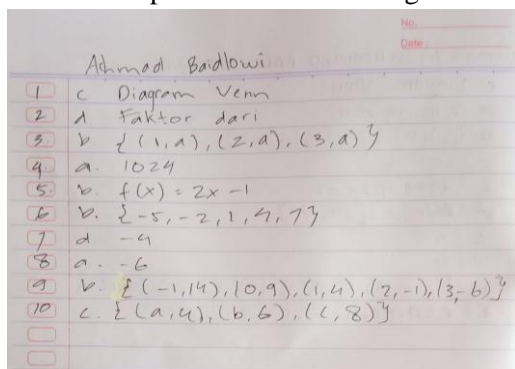 No.
Date:
Ahmad Baidlowi
1 c Diagram Venn
2 d Faktor dari
3. b {(1,a), (2,a), (3,a)}
4. a. 1024
5. b. f(x) = 2x -1
6 b. {-5, -2, 1, 4, 7}
7 d. -4
8 a. -6
9 b. {(-1,14), (0,9), (1,4), (2,-1), (3,-6)}
10 c. {(a,4), (b,6), (c,8)}